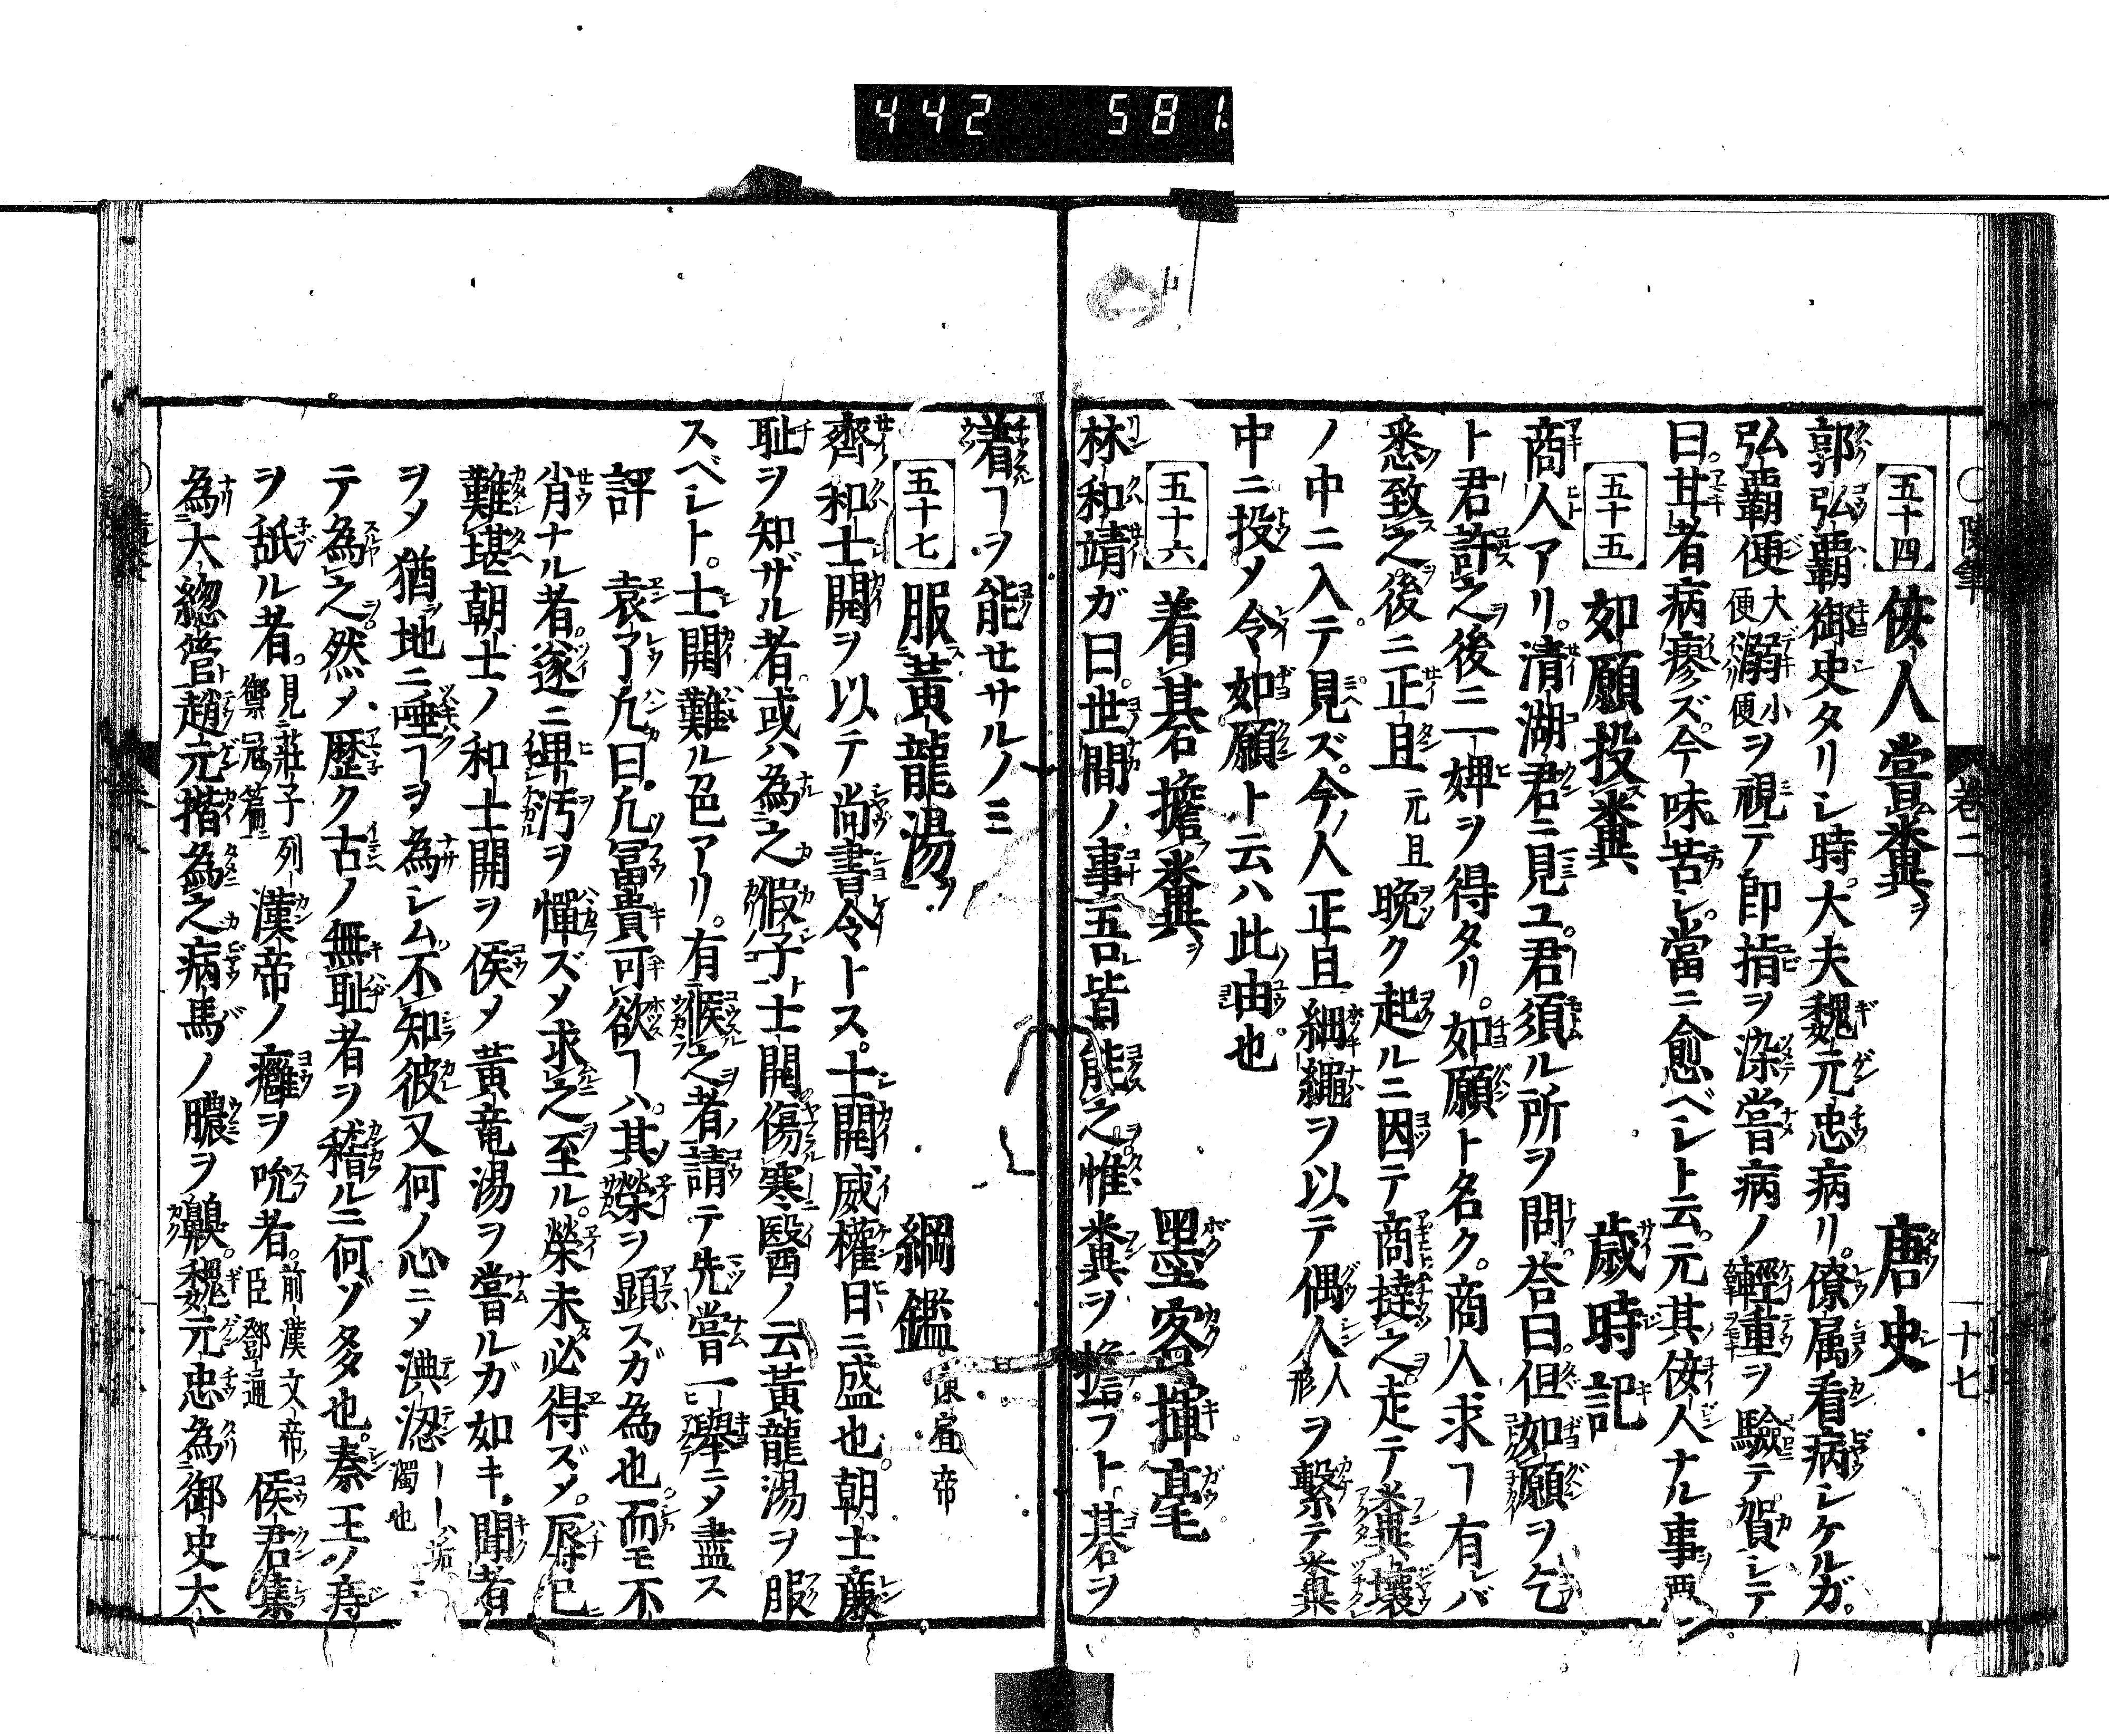 442 581
五十四 佞人甞糞ヲ 唐史
郭弘覇御史タリシ時大夫魏元忠病リ僚属看病シケルガ
弘覇便大便溺小便ヲ視テ即指ヲ染甞病ノ輕重ヲ驗テ賀シテ
曰甘者病瘳ズ今味苦シ當ニ愈ベシト云元其佞人ナル事ヲ悪ン
五十五 如願投糞 歳時記
商人アリ清湖君ニ見ユ君須ル所ヲ問荅曰但如願ヲ乞
ト君許之後ニ一婢ヲ得タリ如願ト名ク商人求ヿ有レバ
悉致之後ニ正旦元旦晩ク起ルニ因テ商撻之走テ糞壤
ノ中ニ入テ見ズ今ノ人正旦細繩ヲ以テ偶人人形ヲ繫テ糞
中ニ投メ令如願ト云ハ此由也
五十六 着碁擔糞ヲ 墨客揮毫
林和靖ガ曰世間ノ事吾皆能之惟糞ヲ擔フト碁ヲ
卷二 十七
着ヿヲ能セサルノミ
五十七 服黃龍湯ヲ 綱鑑 陳宣帝
齊和士開ヲ以テ尚書令トス士開威權日ニ盛也朝士廉
耻ヲ知ザル者或ハ為之假子ト士開傷寒醫ノ云黃龍湯ヲ服
スベシト士開難ル色アリ有候之者請テ先甞一擧ニメ盡ス
評 袁了凡曰凡冨貴可欲ヿハ其榮ヲ顯スガ為也而モ不
肖ナル者遂ニ卑汚ヲ憚ズメ求之至ル榮未必得ズメ辱已
難堪朝士ノ和士開ヲ候メ黃竜湯ヲ甞ルガ如キ聞者
ヲメ猶地ニ唾ヿヲ為シム不知彼又何ノ心ニメ淟涊濁也
テ為之然メ歴ク古ノ無耻者ヲ稽ルニ何ゾ多也秦王ノ痔
ヲ舐ル者見莊子列禦冠篇ニ漢帝ノ癰ヲ吮者前漢文帝臣鄧通侯君集
為大總管趙元楷為之病馬ノ膿ヲ齅魏元忠為御史大